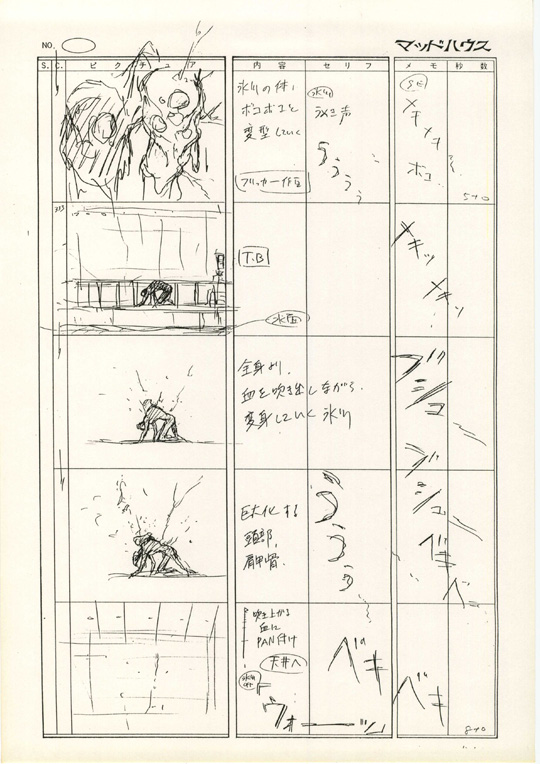 NO.
マッドハウス
S. C. ピクチュア 内容 セリフ メモ 秒数
氷川の体、
ボコボコと
変型していく
フリッカー作画
氷川
うめき声
うぅぅぅ
SE
メキ
メキ
ボコ
5+0
333
T.B
メキッ
メキッ
全身より、
血を吹き出しながら、
変身していく 氷川
ブシュ
巨大化する
頭部、
肩甲骨。
うぅぅ
ブシュ
バキ
吹き上がる
血に
PAN付け
天井へ
氷川
ヴォーーッ
バキ
バキ
8+0